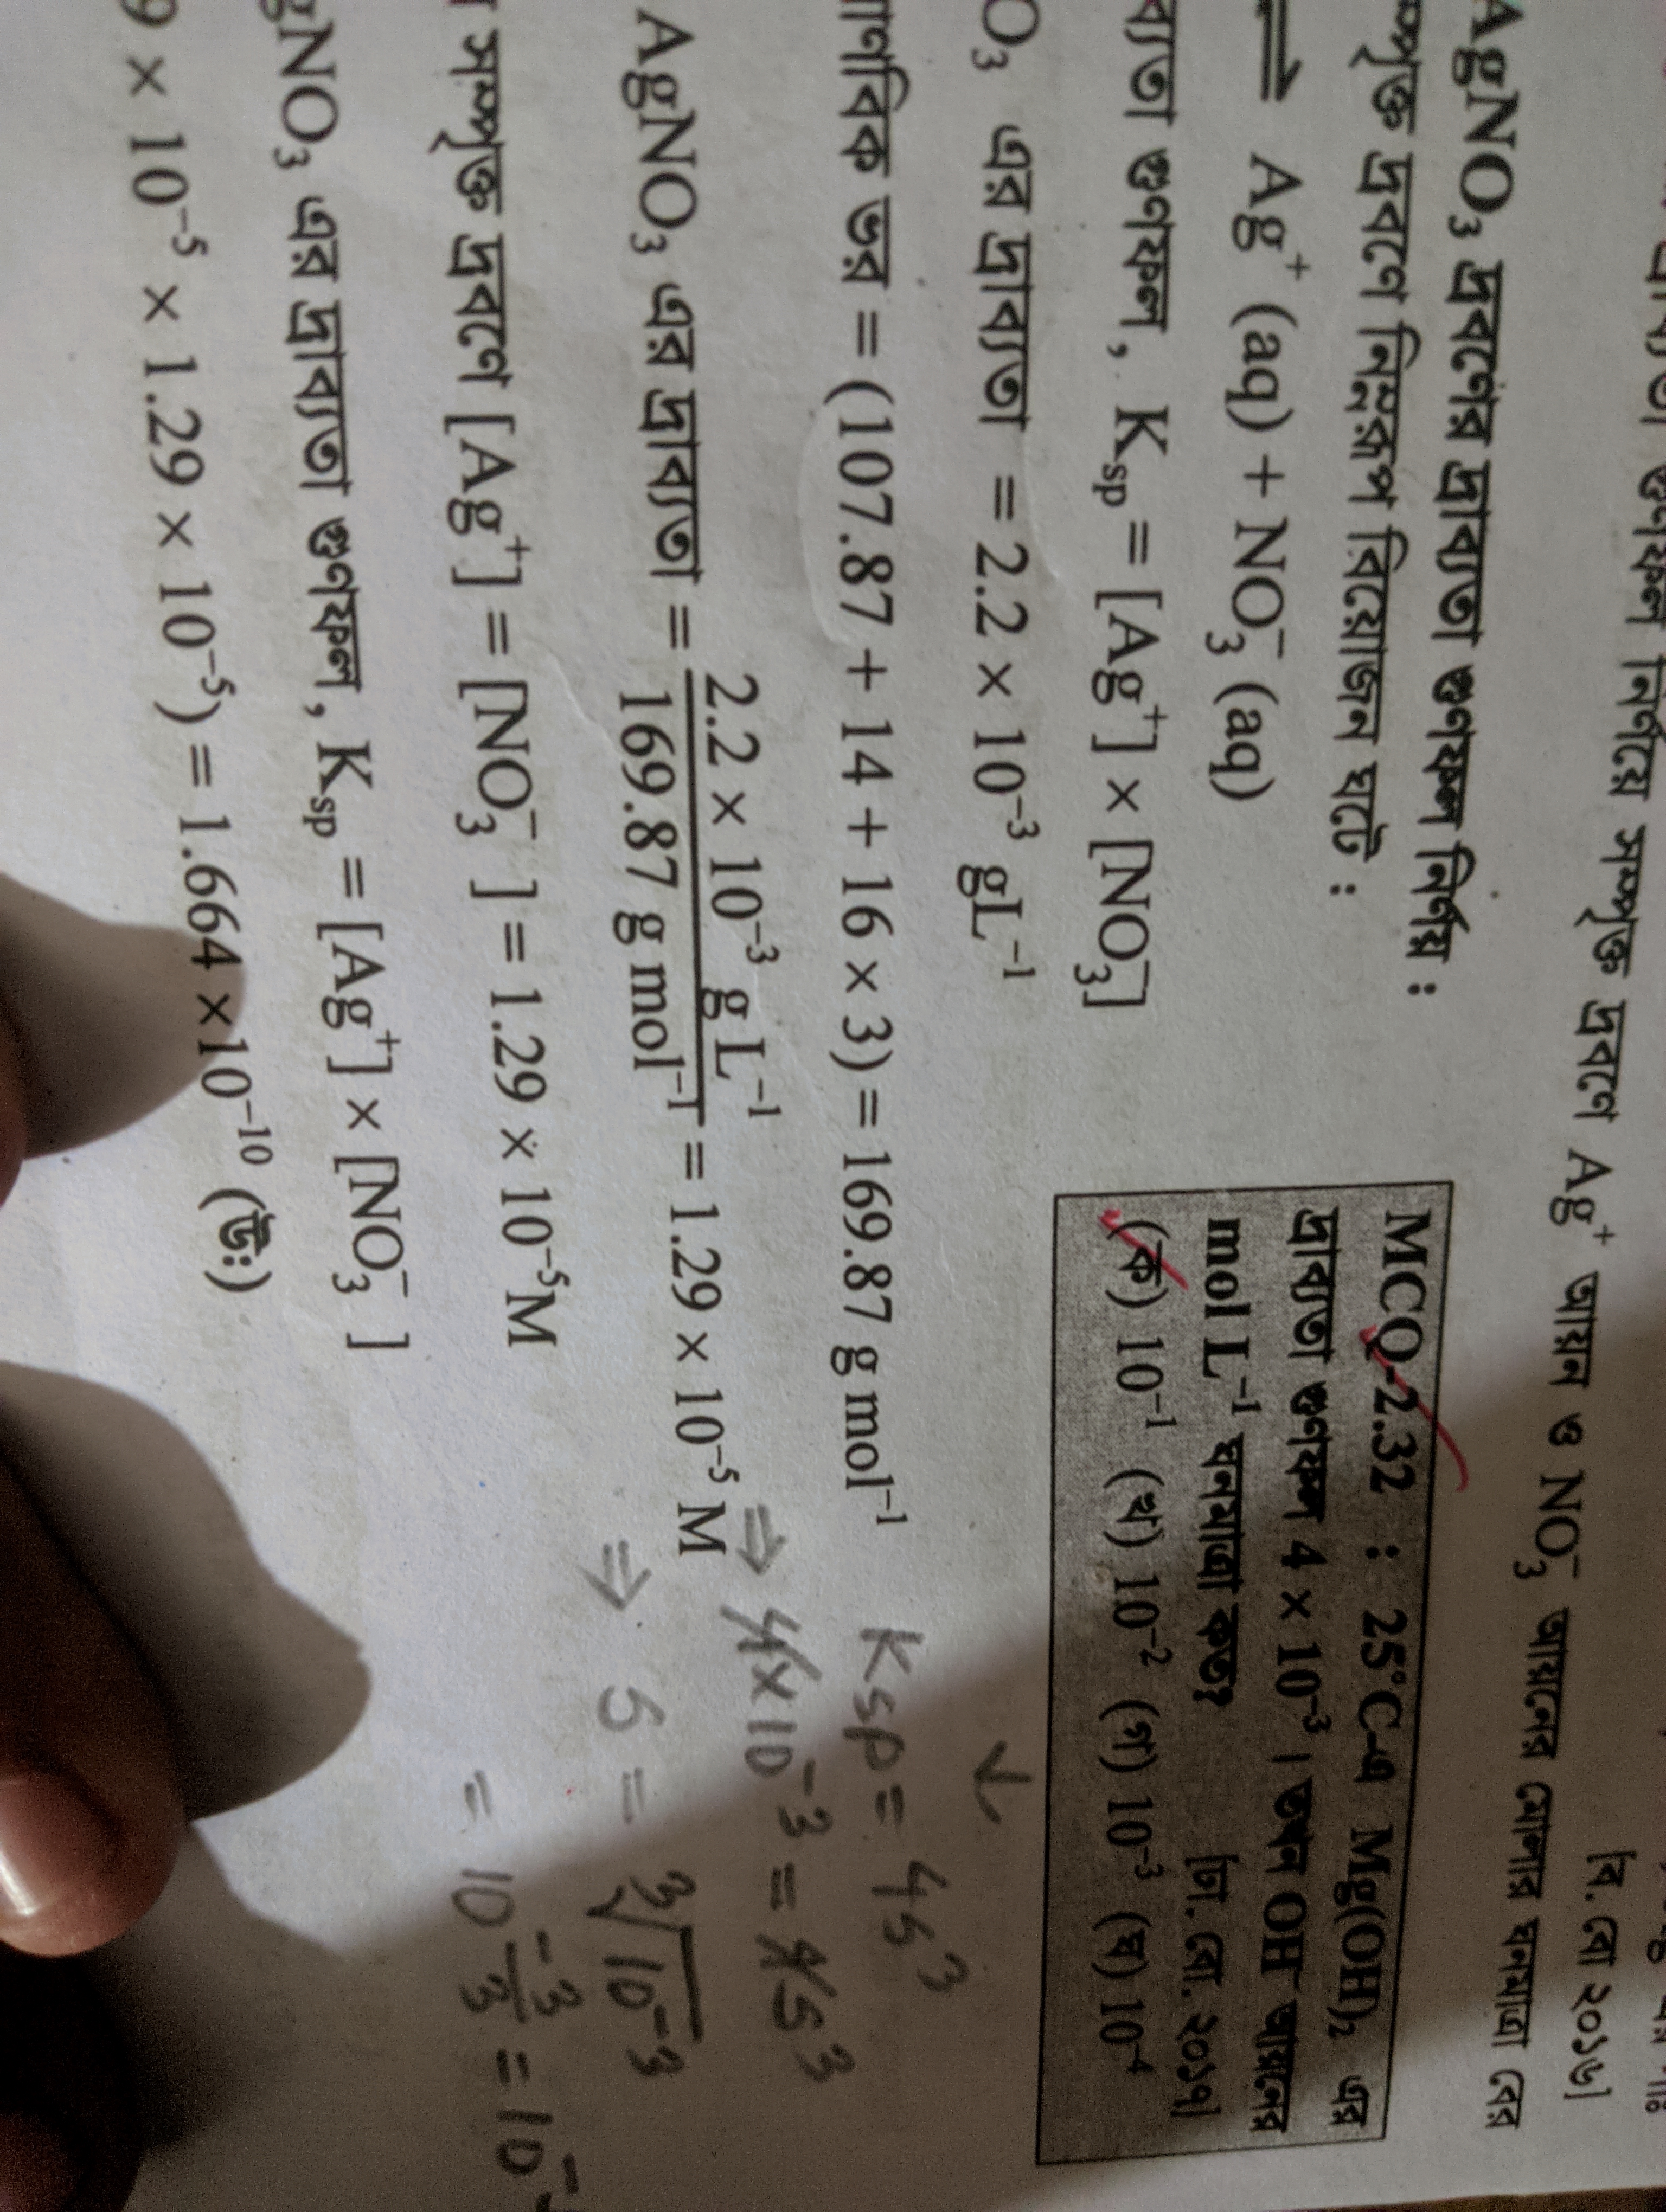 দ্রাব্যতা গুণফল নির্ণয়ে সম্পৃক্ত দ্রবণে Ag⁺ আয়ন ও NO₃⁻ আয়নের মোলার ঘনমাত্রা বের
[ব. বো ২০১৬]
AgNO₃ দ্রবণের দ্রাব্যতা গুণফল নির্ণয় :
সম্পৃক্ত দ্রবণে নিম্নরূপ বিয়োজন ঘটে :
⇌ Ag⁺ (aq) + NO₃⁻ (aq)
ব্যতা গুণফল, Ksp = [Ag⁺] × [NO₃⁻]
O₃ এর দ্রাব্যতা = 2.2 × 10⁻³ gL⁻¹
ণবিক ভর = (107.87 + 14 + 16 × 3) = 169.87 g mol⁻¹
AgNO₃ এর দ্রাব্যতা = 2.2 × 10⁻³ gL⁻¹ / 169.87 g mol⁻¹ = 1.29 × 10⁻⁵ M
সম্পৃক্ত দ্রবণে [Ag⁺] = [NO₃⁻] = 1.29 × 10⁻⁵M
gNO₃ এর দ্রাব্যতা গুণফল, Ksp = [Ag⁺] × [NO₃⁻]
9 × 10⁻⁵ × 1.29 × 10⁻⁵) = 1.664 × 10⁻¹⁰ (উঃ)
MCQ-2.32 : 25°C-এ Mg(OH)₂ এর
দ্রাব্যতা গুণফল 4 × 10⁻³ । তখন OH⁻ আয়নের
mol L⁻¹ ঘনমাত্রা কত? [ঢা. বো. ২০১৭]
(ক) 10⁻¹ (খ) 10⁻² (গ) 10⁻³ (ঘ) 10⁻⁴
↓
Ksp = 4s³
⇒ 4×10⁻³ = 4s³
⇒ s = ³√10⁻³
= 10^(-3/3) = 10⁻